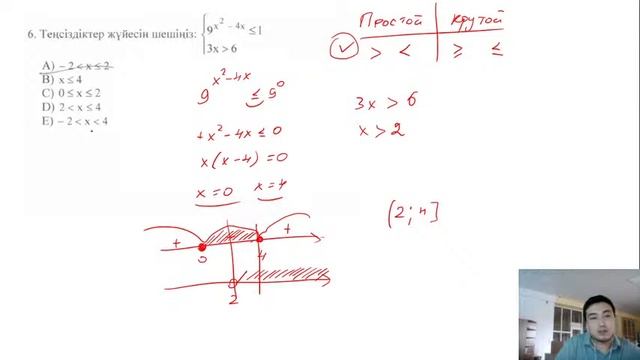 6. Теңсіздіктер жүйесін шешіңіз: { 9^{x^2 – 4x} ≤ 1
3x > 6
A) – 2 < x ≤ 2
B) x ≤ 4
C) 0 ≤ x ≤ 2
D) 2 < x ≤ 4
E) – 2 < x < 4
Простой | крутой
> < | ≥ ≤
9^{x^2-4x} ≤ 9^0
+x^2-4x ≤ 0
x(x-4)=0
x=0 x=4
3x > 6
x > 2
(2; 4]
+ +
0 4
2